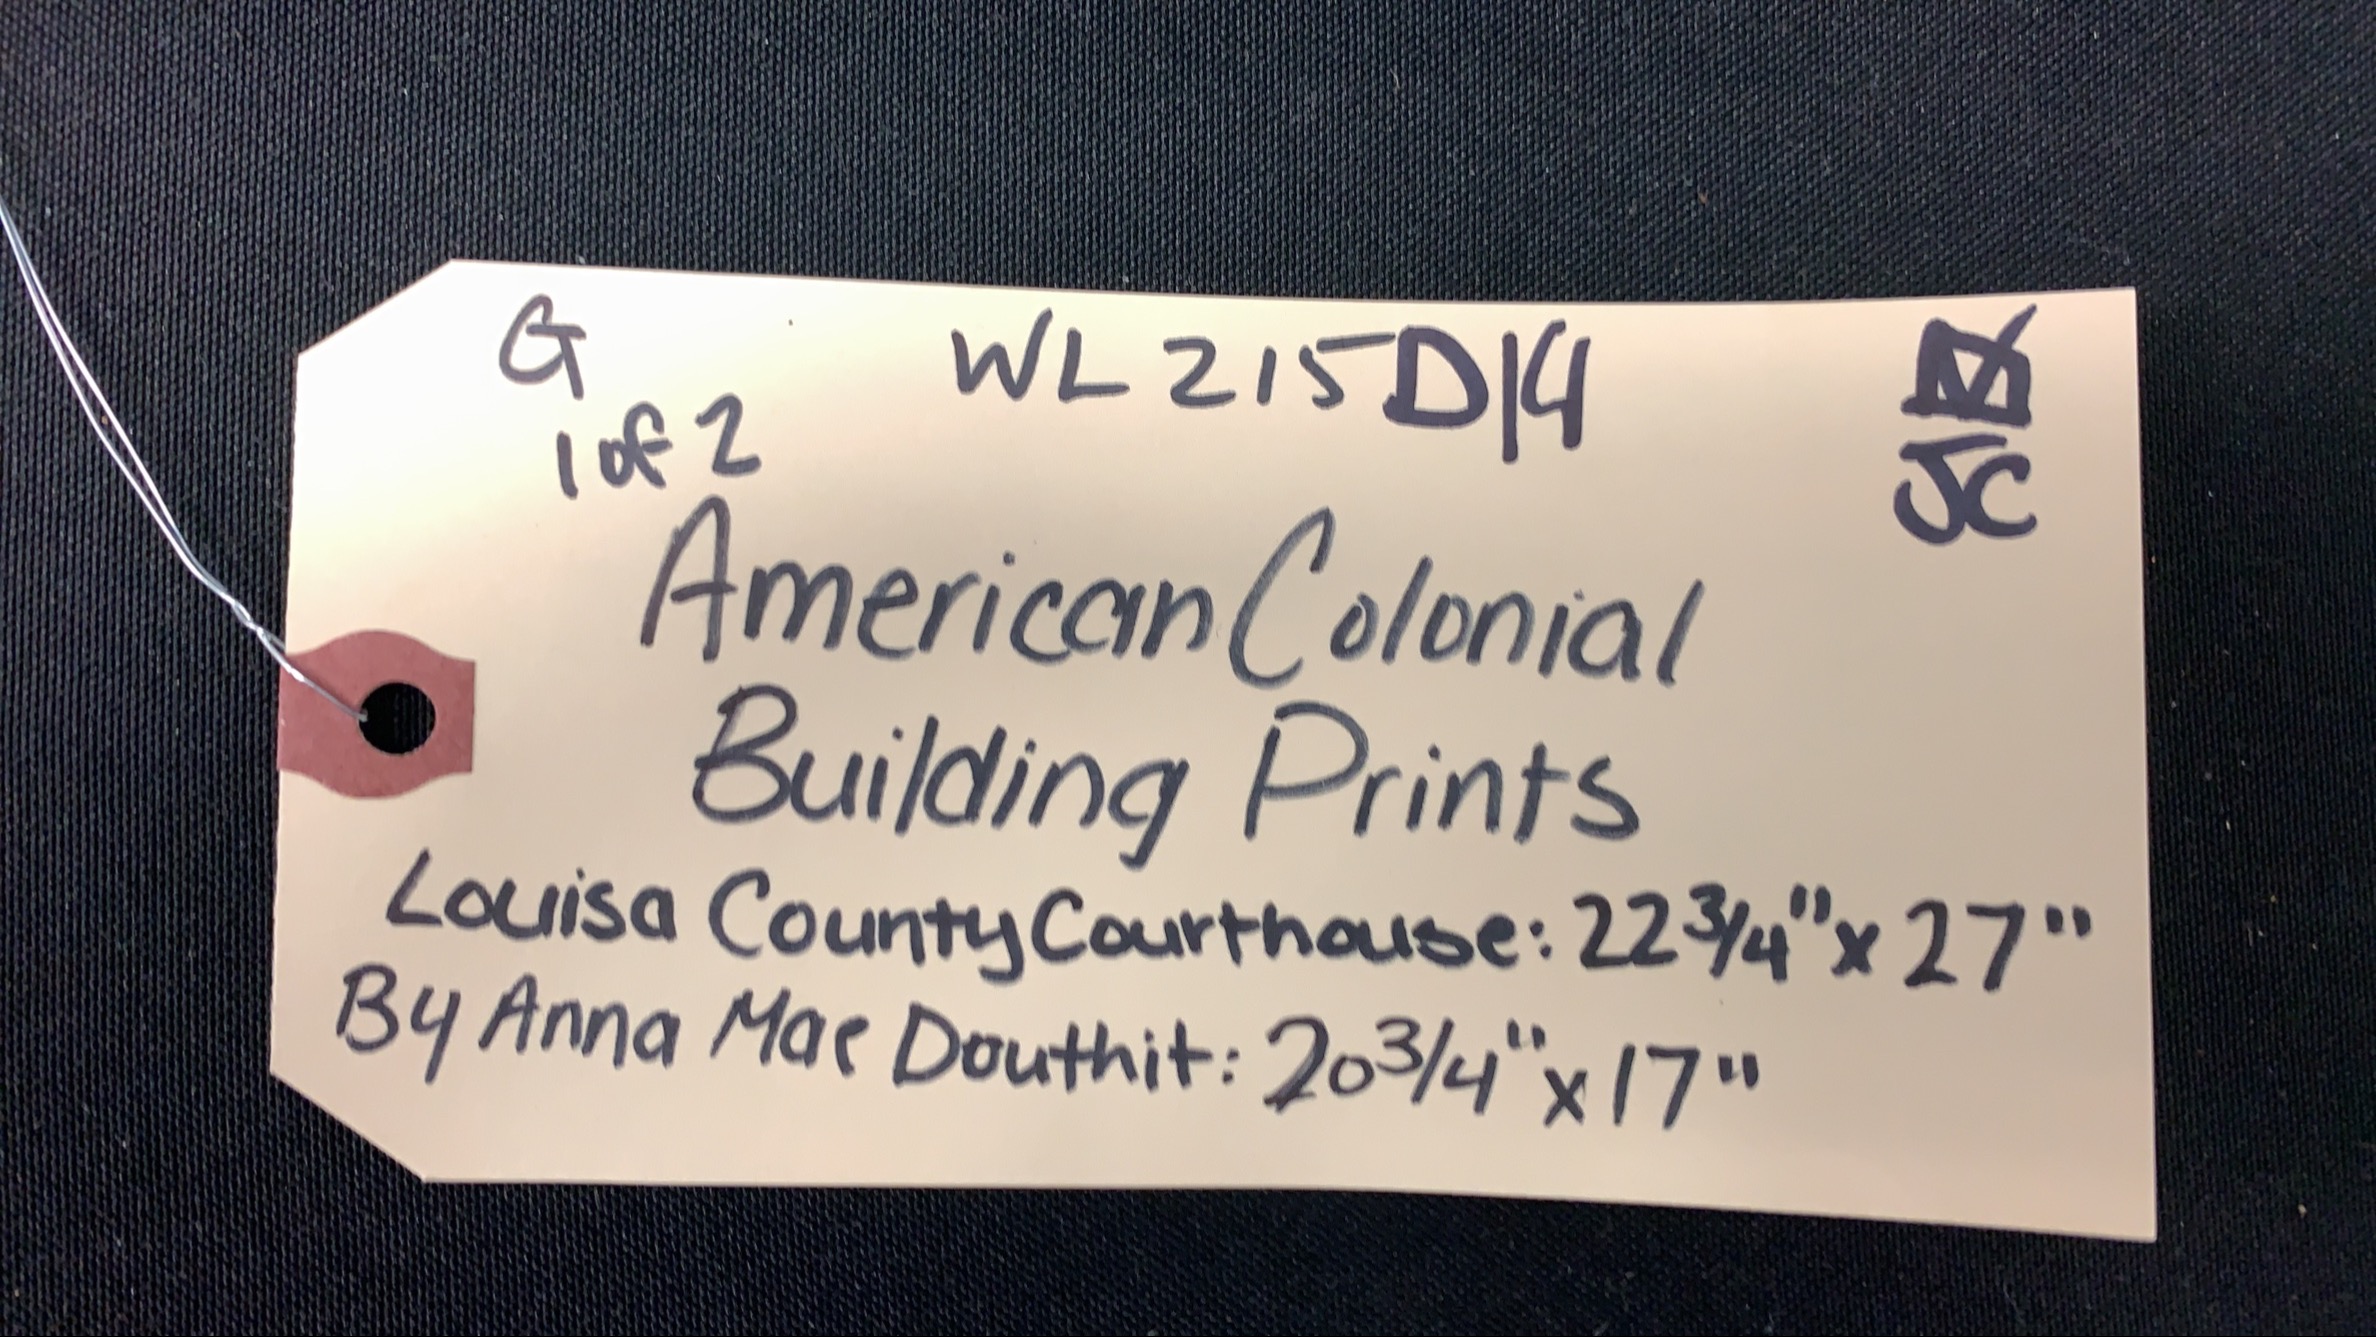 G WL 215 D14
1 of 2
JC
American Colonial
Building Prints
Louisa County Courthouse: 22 3/4" x 27"
By Anna Mae Douthit: 20 3/4" x 17"